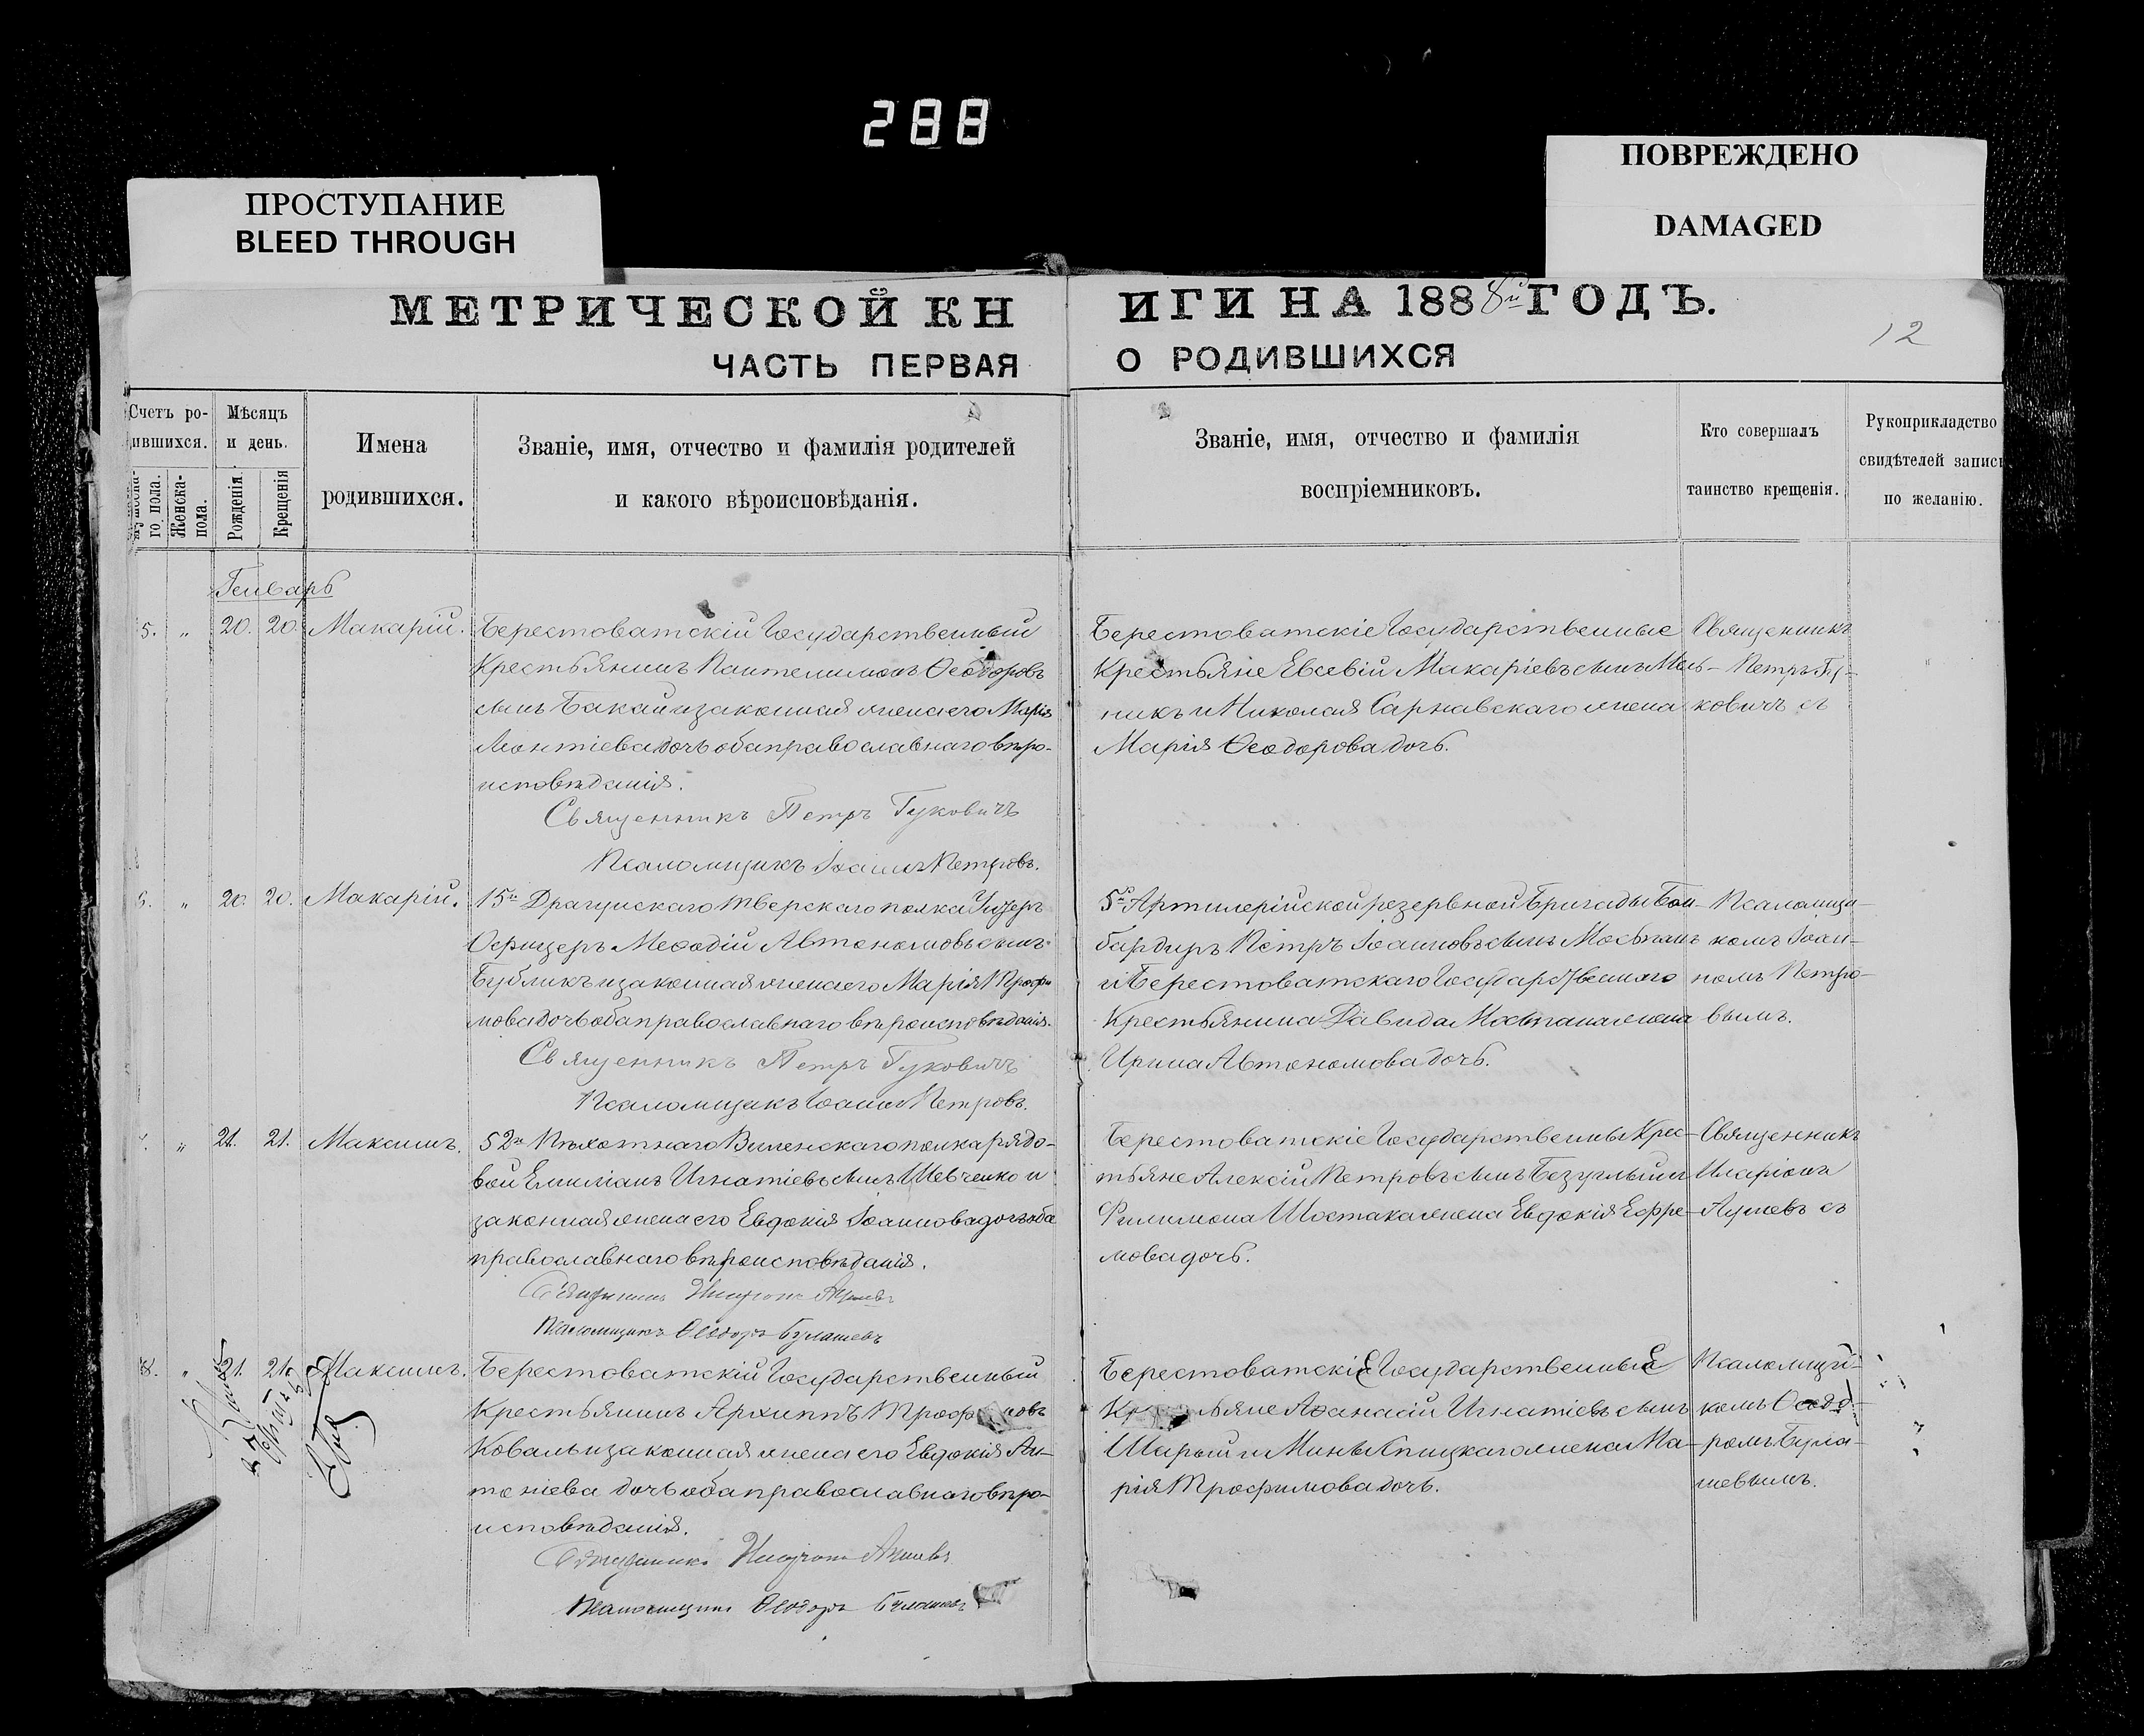 288
ПРОСТУПАНИЕ
BLEED THROUGH
ПОВРЕЖДЕНО
DAMAGED
МЕТРИЧЕСКОЙ КН
ИГИ НА 1888й ГОДЪ.
12
ЧАСТЬ ПЕРВАЯ
О РОДИВШИХСЯ
Счетъ ро-
дившихся.
го пола.
Женска-
пола.
Мѣсяцъ
и день.
Рожденія
Крещенія
Имена
родившихся.
Званіе, имя, отчество и фамилія родителей
и какого вѣроисповѣданія.
Званіе, имя, отчество и фамилія
воспріемниковъ.
Кто совершалъ
таинство крещенія.
Рукоприкладство
свидѣтелей записи
по желанію.
Генварь
5. " 20. 20. Макарій.
Берестоватскій Государственный
Крестьянинъ Пантелимонъ Ѳеодоровъ
сынъ Бакай и законная жена его Марія
Леонтіева дочь оба православнаго вѣро-
исповѣданія.
Священникъ Петръ Гуковичъ
Псаломщикъ Іоаннъ Петровъ.
Берестоватскіе Государственные
Крестьяне Евсевій Макаріевъ сынъ Мель-
никъ и Николая Сарнавскаго жена
Марія Ѳеодорова дочь.
Священникъ
Петръ Гу-
ковичъ съ
6. " 20. 20. Макарій.
15го Драгунскаго Тверскаго полка Унтеръ
Офицеръ Меѳодій Автономовъ сынъ
Бубликъ и законная жена его Марія Трофи
мова дочь оба православнаго вѣроисповѣданія.
Священникъ Петръ Гуковичъ
Псаломщикъ Іоаннъ Петровъ.
5й Артилерійской резервной Бригады Бом-
бардиръ Петръ Іоанновъ сынъ Мосьпанъ
и Берестоватскаго Государственнаго
Крестьянина Давида Мосьпана жена
Ирина Автономова дочь.
Псаломщи-
комъ Іоан-
номъ Петро-
вымъ.
" 21. 21. Максимъ.
52го Пѣхотнаго Виленскаго полка рядо-
вой Емиліанъ Игнатіевъ сынъ Шевченко и
законная жена его Евдокія Іоаннова дочь оба
православнаго вѣроисповѣданія.
Псаломщикъ Ѳеодоръ Булашевъ
Берестоватскіе Государственны Крес-
тьяне Алексій Петровъ сынъ Безуглый и
Филимона Шостака жена Евдокія Ефре-
мова дочь.
Священникъ
Иларіонъ
съ
8. " 21. 21. Максимъ.
Берестоватскій Государственный
Крестьянинъ Архиппъ Трофимовъ
Коваль и законная жена его Евдокія Ан-
тоніева дочь оба православнаго вѣро-
исповѣданія.
Псаломщикъ Ѳеодоръ Булашевъ
Берестоватскіе Государственные
Крестьяне Аѳанасій Игнатіевъ сынъ
Шарый и Мины жена Ма-
рія Трофимова дочь.
Псаломщи-
комъ Ѳеодо-
ромъ Була-
шевымъ.